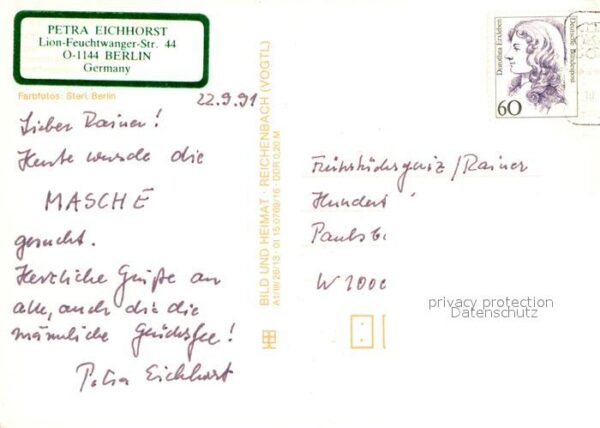 PETRA EICHHORST
Lion-Feuchtwanger-Str. 44
O-1144 BERLIN
Germany
Farbfotos: Sterl, Berlin
22.9.91
Lieber Rainer!
Heute wurde die
MASCHE
gesucht.
Herzliche Grüße an
alle, auch die die
männliche Glücksfee!
Petra Eichhorst
BILD UND HEIMAT · REICHENBACH (VOGTL)
A1/III/26/13 · 01 15 0769/16 · DDR 0,20 M
Dorothea Erxleben
Deutsche Bundespost
60
Frühstücksquiz/Rainer
Hundert
Pauls
W 2000
privacy protection
Datenschutz